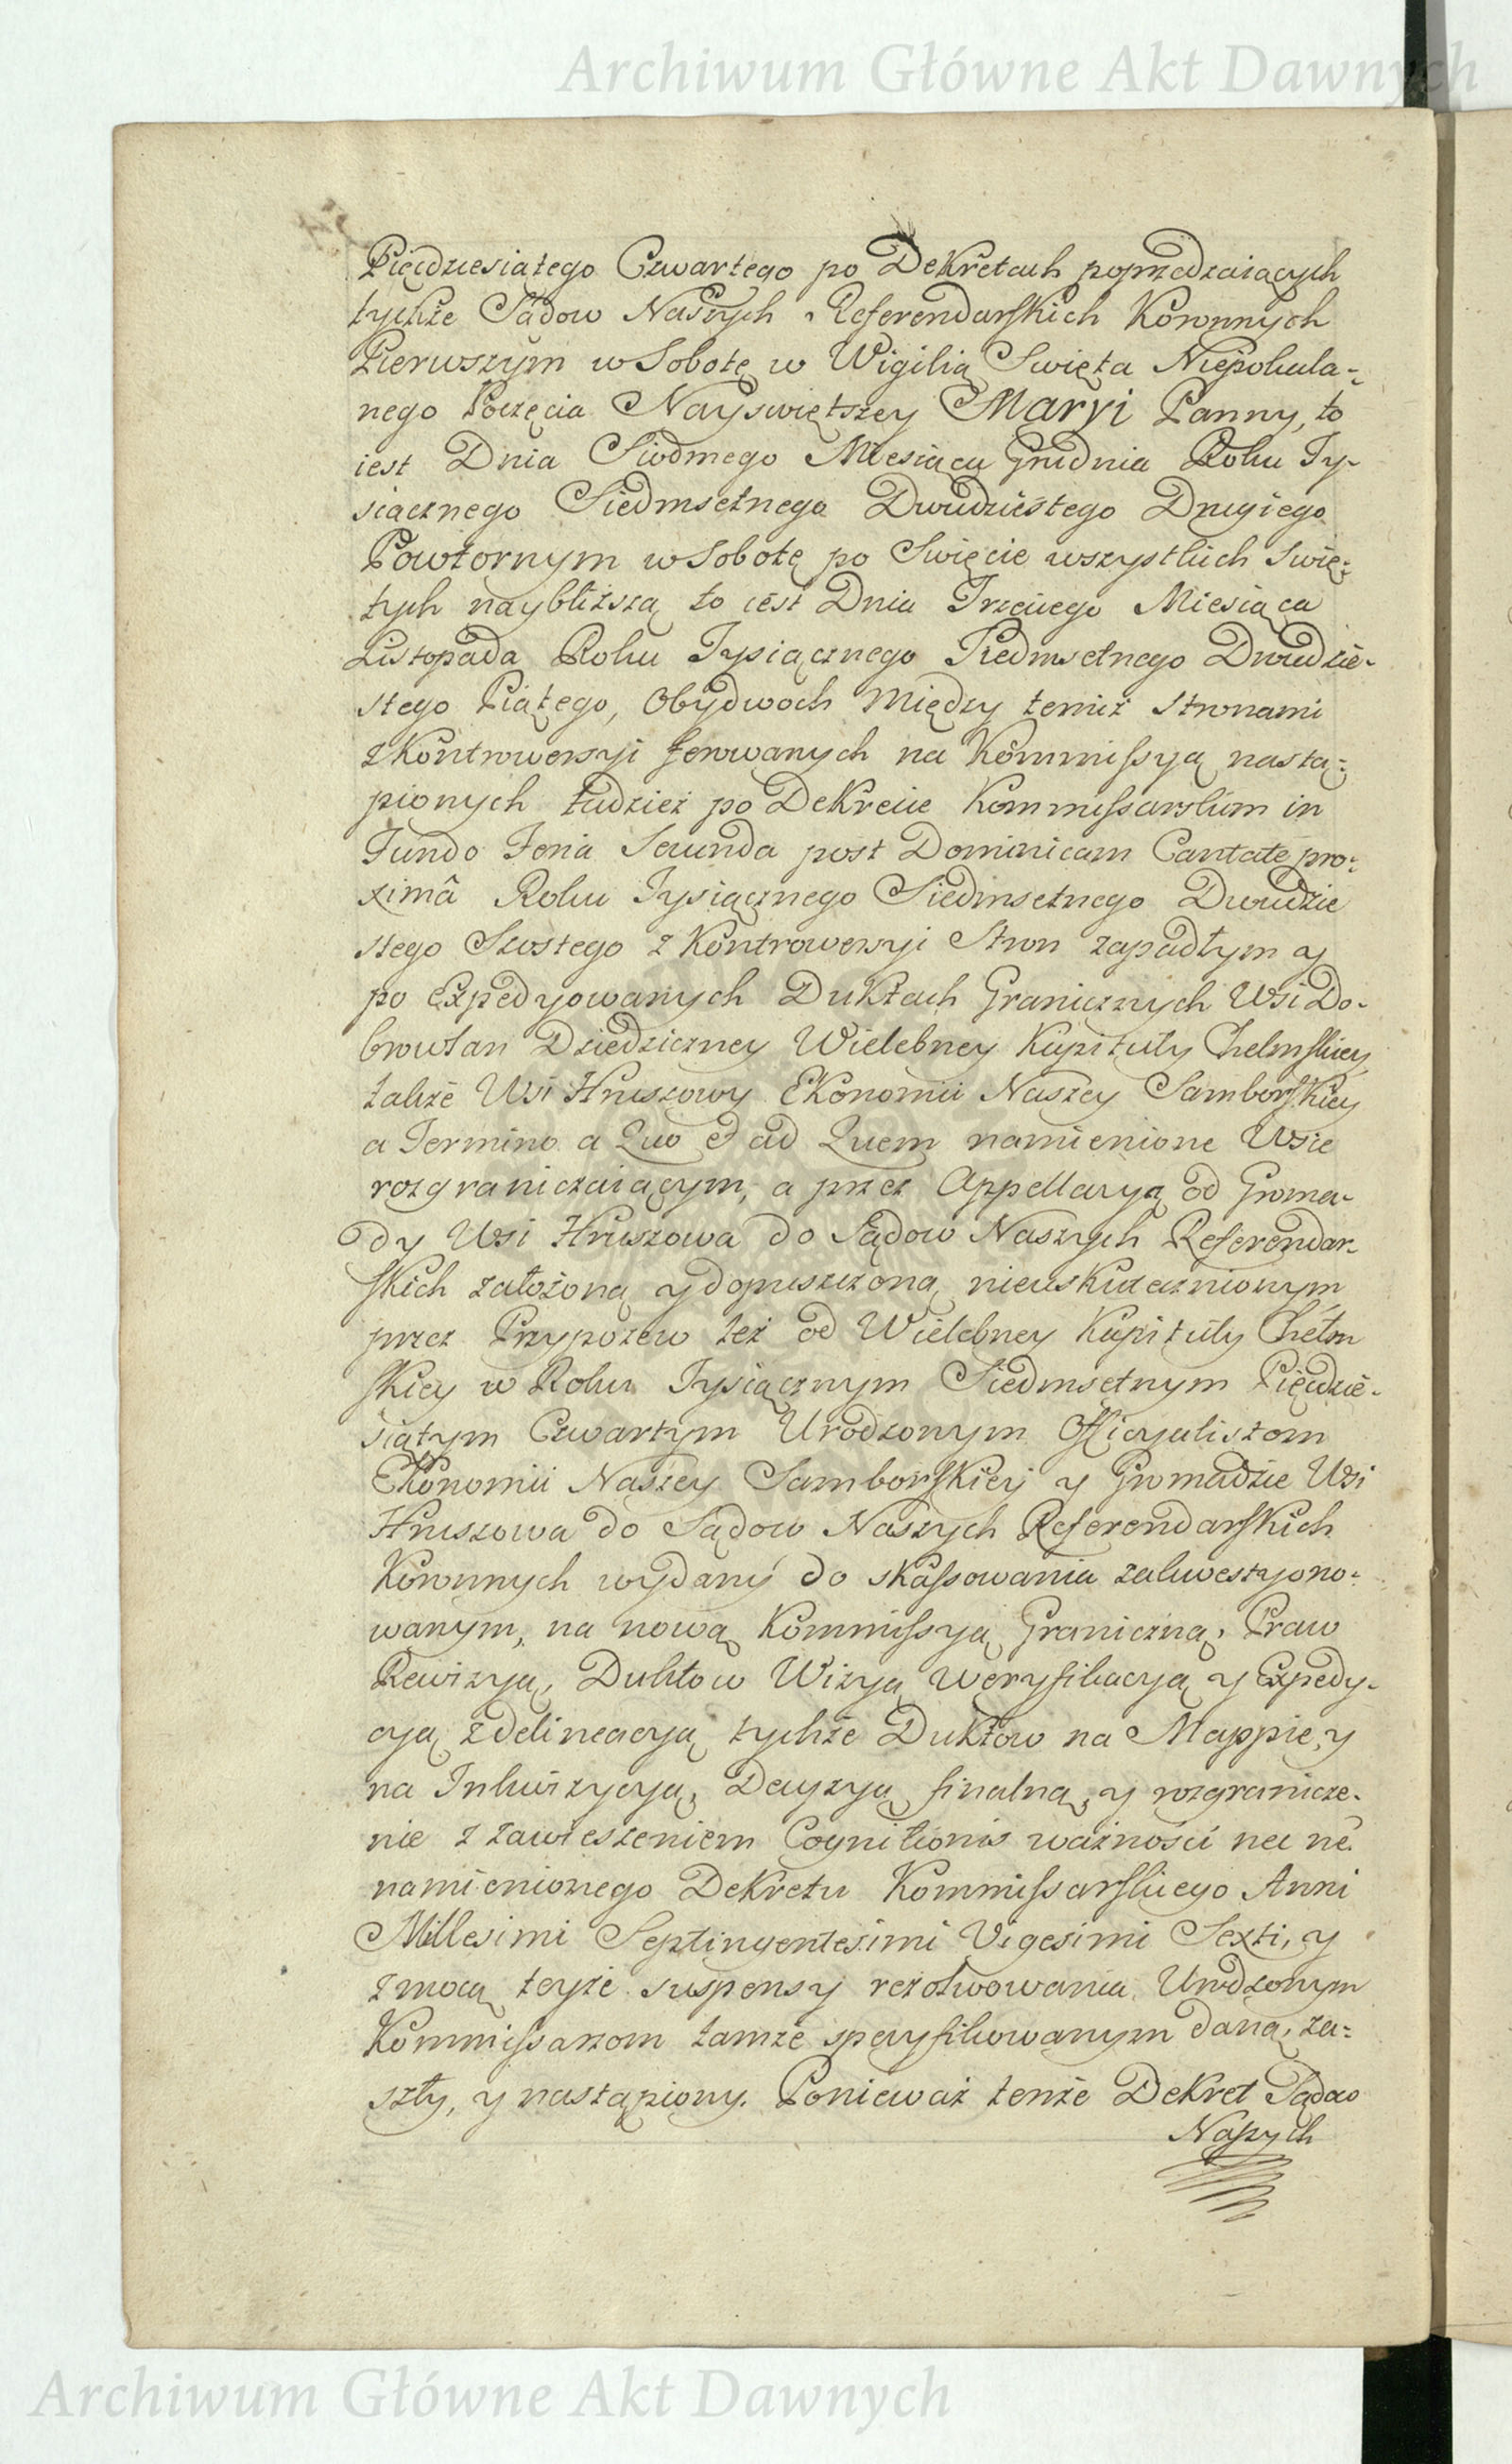 Archiwum Główne Akt Dawnych
Pięćdziesiątego Czwartego po Dekretach poprzedzaiących
tychże Sądow Naszych Referendarskich Koronnych
Pierwszym w Sobotę w Wigilią Swięta Niepokala-
nego Poczęcia Nayswiętszey Maryi Panny, to
iest Dnia Siodmego Miesiąca Grudnia Roku Ty-
siącznego Siedmsetnego Dwudziestego Drugiego
Powtornym w Sobotę po Swięcie wszystkich Swię-
tych naybliższą to iest Dnia Trzeciego Miesiąca
Listopada Roku Tysiącznego Siedmsetnego Dwudzie-
stego Piątego, Obydwoch między temiż Stronami
z Kontrowersyi ferowanych na Kommissyą nastą-
pionych tudzież po Dekrecie Kommissarskim in
Fundo Feria Secunda post Dominicam Cantate pro-
ximâ Roku Tysiącznego Siedmsetnego Dwudzie
stego Szostego z Kontrowersyi Stron zapadłym y
po Expedyowanych Duktach Granicznych Wsi Do-
browlan Dziedziczney Wielebney Kapituły Chelmskiey,
także Wsi Hruszowy Ekonomii Naszey Samborskiey
a Termino a Quo et ad Quem namienione Wsie
rozgraniczaiącym, a przez Appellacyą od Groma-
dy Wsi Hruszowa do Sądow Naszych Referendar-
skich założoną y dopuszczoną nieuskutecznionym
przez Przypozew też od Wielebney Kapituły Chełm
skiey w Roku Tysiącznym Siedmsetnym Pięćdzie-
siątym Czwartym Urodzonym Officyalistom
Ekonomii Naszey Samborskiey y Gromadzie Wsi
Hruszowa do Sądow Naszych Referendarskich
Koronnych wydany do skassowania zakwestyono-
wanym, na nową Kommissyą Graniczną, Praw
Rewizyą, Duktow Wizyą Weryfikacyą y Expedy-
cyą z delineacyą tychże Duktow na Mappie, y
na Inkwizycyą, Decyzyą finalną, y rozgranicze-
nie z zawieszeniem Cognitionis ważności nec ne
namienionego Dekretu Kommissarskiego Anni
Millesimi Septingentesimi Vigesimi Sexti, y
z mocą teyże suspensy rezolwowania Urodzonym
Kommissarzom tamże specyfikowanym daną, za-
szły, y nastąpiony. Ponieważ tenże Dekret Sądow
Naszych
Archiwum Główne Akt Dawnych